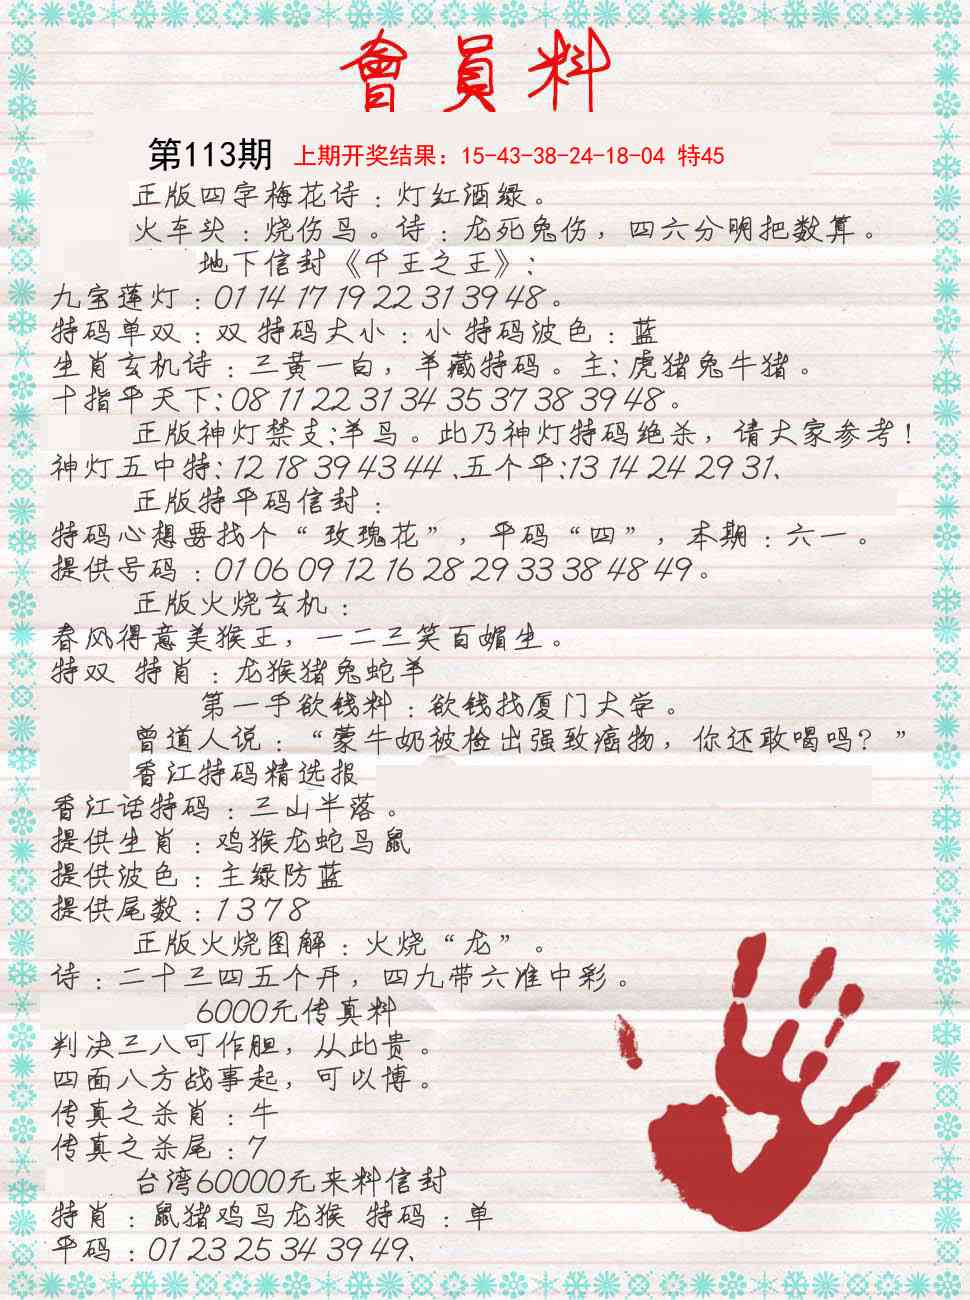 會員料
第113期 上期开奖结果：15-43-38-24-18-04 特45
正版四字梅花诗：灯红酒绿。
火车头：烧伤鸟。诗：龙死兔伤，四六分明把数算。
地下信封《千王之王》：
九宝莲灯：01 14 17 19 22 31 39 48。
特码单双：双 特码大小：小 特码波色：蓝
生肖玄机诗：三黄一白，羊藏特码。主：虎猪兔牛猪。
十指平天下：08 11 22 31 34 35 37 38 39 48。
正版神灯禁支：羊鸟。此乃神灯特码绝杀，请大家参考！
神灯五中特：12 18 39 43 44、五个平：13 14 24 29 31、
正版特平码信封：
特码心想要找个“玫瑰花”，平码“四”，本期：六一。
提供号码：01 06 09 12 16 28 29 33 38 48 49。
正版火烧玄机：
春风得意美猴王，一二三笑百媚生。
特双 特肖：龙猴猪兔蛇羊
第一手欲钱料：欲钱找厦门大学。
曾道人说：“蒙牛奶被检出强致癌物，你还敢喝吗？”
香江特码精选报
香江话特码：三山半落。
提供生肖：鸡猴龙蛇马鼠
提供波色：主绿防蓝
提供尾数：1 3 7 8
正版火烧图解：火烧“龙”。
诗：二十三四五个开，四九带六准中彩。
6000元传真料
判决三八可作胆，从此贵。
四面八方战事起，可以博。
传真之杀肖：牛
传真之杀尾：7
台湾60000元来料信封
特肖：鼠猪鸡马龙猴 特码：单
平码：01 23 25 34 39 49、